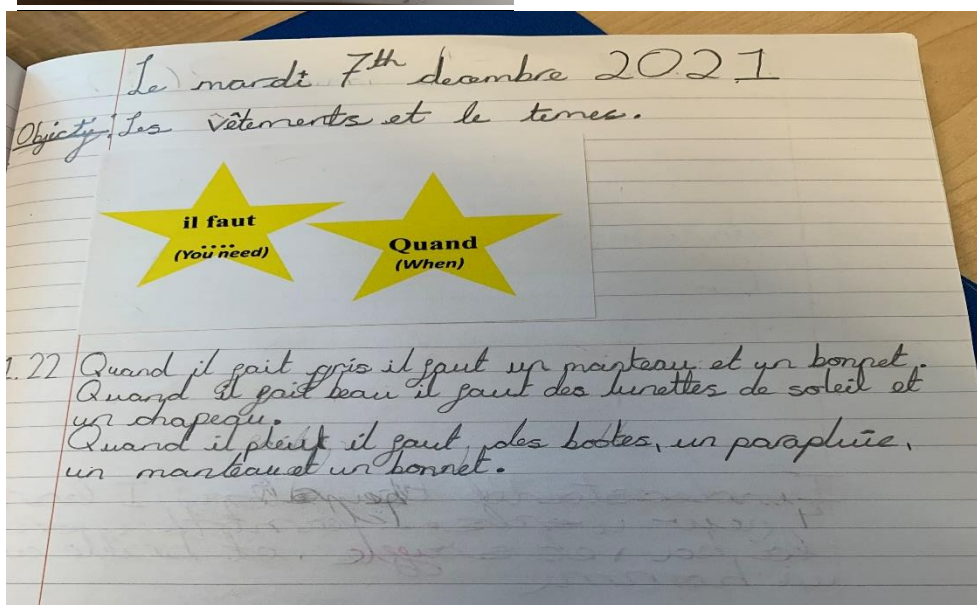 Le mardi 7th decembre 2021
Objectif: Les vêtements et le temes.
il faut
....
(You need)
Quand
(When)
1.22 Quand il fait gris il faut un manteau et un bonnet.
Quand il fait beau il faut des lunettes de soleil et
un chapeau.
Quand il pleut il faut des bottes, un parapluie,
un manteau et un bonnet.